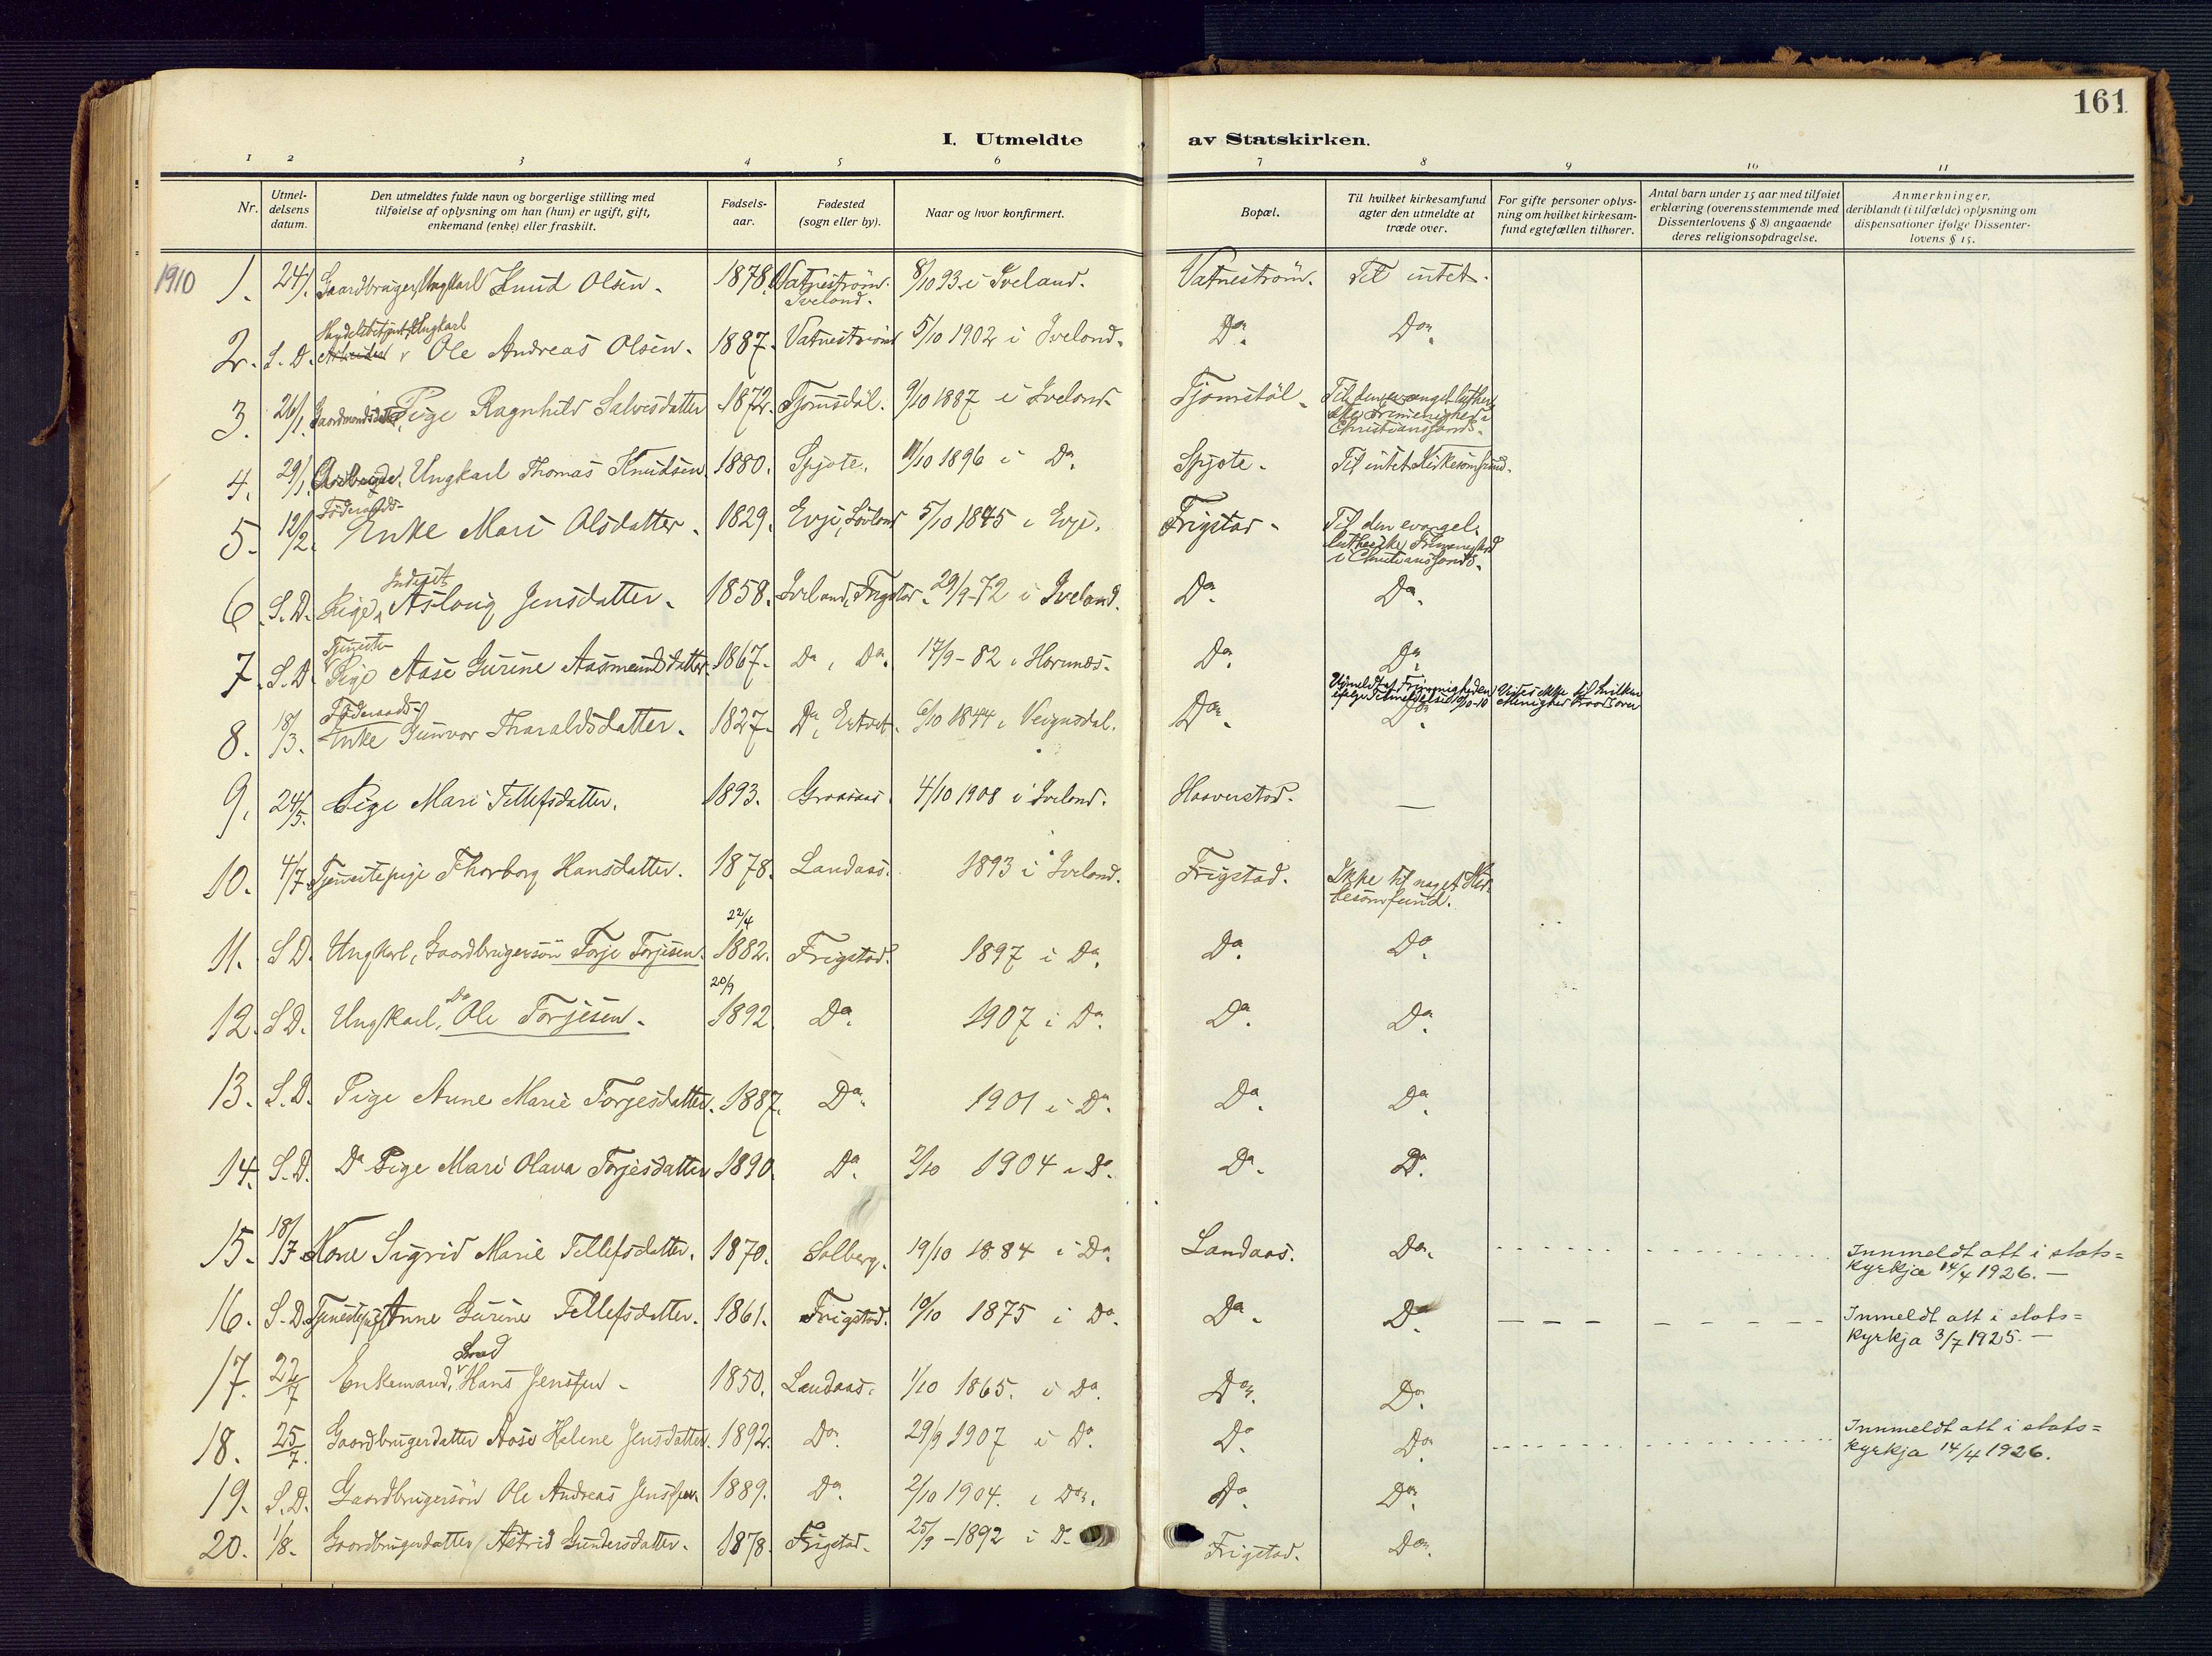 161
I. Utmeldte av Statskirken.
1 2 3 4 5 6 7 8 9 10 11
Nr.
Utmel-
delsens
datum.
Den utmeldtes fulde navn og borgerlige stilling med
tilføielse af oplysning om han (hun) er ugift, gift,
enkemand (enke) eller fraskilt.
Fødsels-
aar.
Fødested
(sogn eller by).
Naar og hvor konfirmert.
Bopæl.
Til hvilket kirkesamfund
agter den utmeldte at
træde over.
For gifte personer oplys-
ning om hvilket kirkesam-
fund egtefællen tilhører.
Antal barn under 15 aar med tilføiet
erklæring (overensstemmende med
Dissenterlovens § 8) angaaende
deres religionsopdragelse.
Anmerkninger,
deriblandt (i tilfælde) oplysning om
dispensationer ifølge Dissenter-
lovens § 15.
1910
1. 24/1. Gaardbruger, Ungkarl Knud Olsen. 1878. Vatneström. 8/10 93 i Iveland. Vatneström. Til intet.
Iveland.
Ungkarl
2. S. D. Ole Andreas Olsen. 1887. Vatneström 5/10 1902 i Iveland. Do. Do.
3. 26/1. Pige Ragnhild Salvesdatter 1872. 9/10 1887 i Iveland. Til den evangel. luther
ske Frimenighed i
Christianssand.
4. 29/1. Ungkarl Thomas Knudsen. 1880. Spjote. 11/10 1896 i Do. Spjote. Til intet Kirkesamfund.
Føderaads-
5. 12/2. Enke Mari Olsdatter. 1829. Evje, 5/10 1845 i Evje. Frigstad. Til den evangel.
lutherske Frimenighed
i Christianssand.
Inderst
6. S. D. Pige, Aslaug Jensdatter. 1858. Iveland, Frigstad. 29/9-72 i Iveland. Do. Do.
Tjeneste-
7. S. D. Pige Aase Gurine Aasmundsdatter. 1867. Do, Do. 17/9-82 i Hornnes. Do. Do.
Udmeldt af Frimenigheden Vides ikke til hvilken
Føderaads-
8. 18/3. Enke Gunvor Tharaldsdatter. 1827. Do, 6/10 1844 i Veignsdal. Do. Do.
9. 24/5. Pige Mari Tellefsdatter. 1893. Graasaas. 4/10 1908 i Iveland. Haaverstad. —
10. 4/7. Tjenestepige Thorborg Hansdatter. 1878. Landaas. 1893 i Iveland. Frigstad. Ikke til noget Kir-
kesamfund.
22/4
11. S D. Ungkarl, Gaardbrugersøn Torje Torjesen. 1882. Frigstad. 1897 i Do. Do. Do.
20/9
Do
12. S D. Ungkarl, Ole Torjesen. 1892. Do. 1907 i Do. Do. Do.
13. S. D. Pige Anne Marie Torjesdatter. 1887. Do. 1901 i Do. Do. Do.
14. S. D. Do Pige Mari Olava Torjesdatter 1890. Do. 2/10 1904 i Do. Do. Do.
15. 18/7 Kone Sigrid Marie Tellefsdatter. 1870. Solberg. 19/10 1884 i Do. Landaas. Do. Innmeldt att i stats=
kyrkja 14/4 1926. —
16. S. D. Tjenestepige Anne Gurine Tellefsdatter. 1861. Frigstad. 10/10 1875 i Do. Do. Do. Inmeldt att i stats=
kyrkja 3/7 1925. —
17. 22/7 Enkemand, Hans Jenssen. 1850. Landaas. 1/10 1865. i Do. Do. Do.
18. 25/7. Gaardbrugerdatter Aase Helene Jensdatter. 1892. Do. 29/9 1907 i Do. Do. Do. Innmeldt att i stats=
kyrkja 14/4 1926.
19. S. D. Gaardbrugersøn Ole Andreas Jenssen. 1889. Do. 2/10 1904. i Do. Do. Do.
20. 1/8. Gaardbrugerdatter Astrid Gundersdatter. 1878. Frigstad. 25/9-1892 i D. Frigstad. Do.